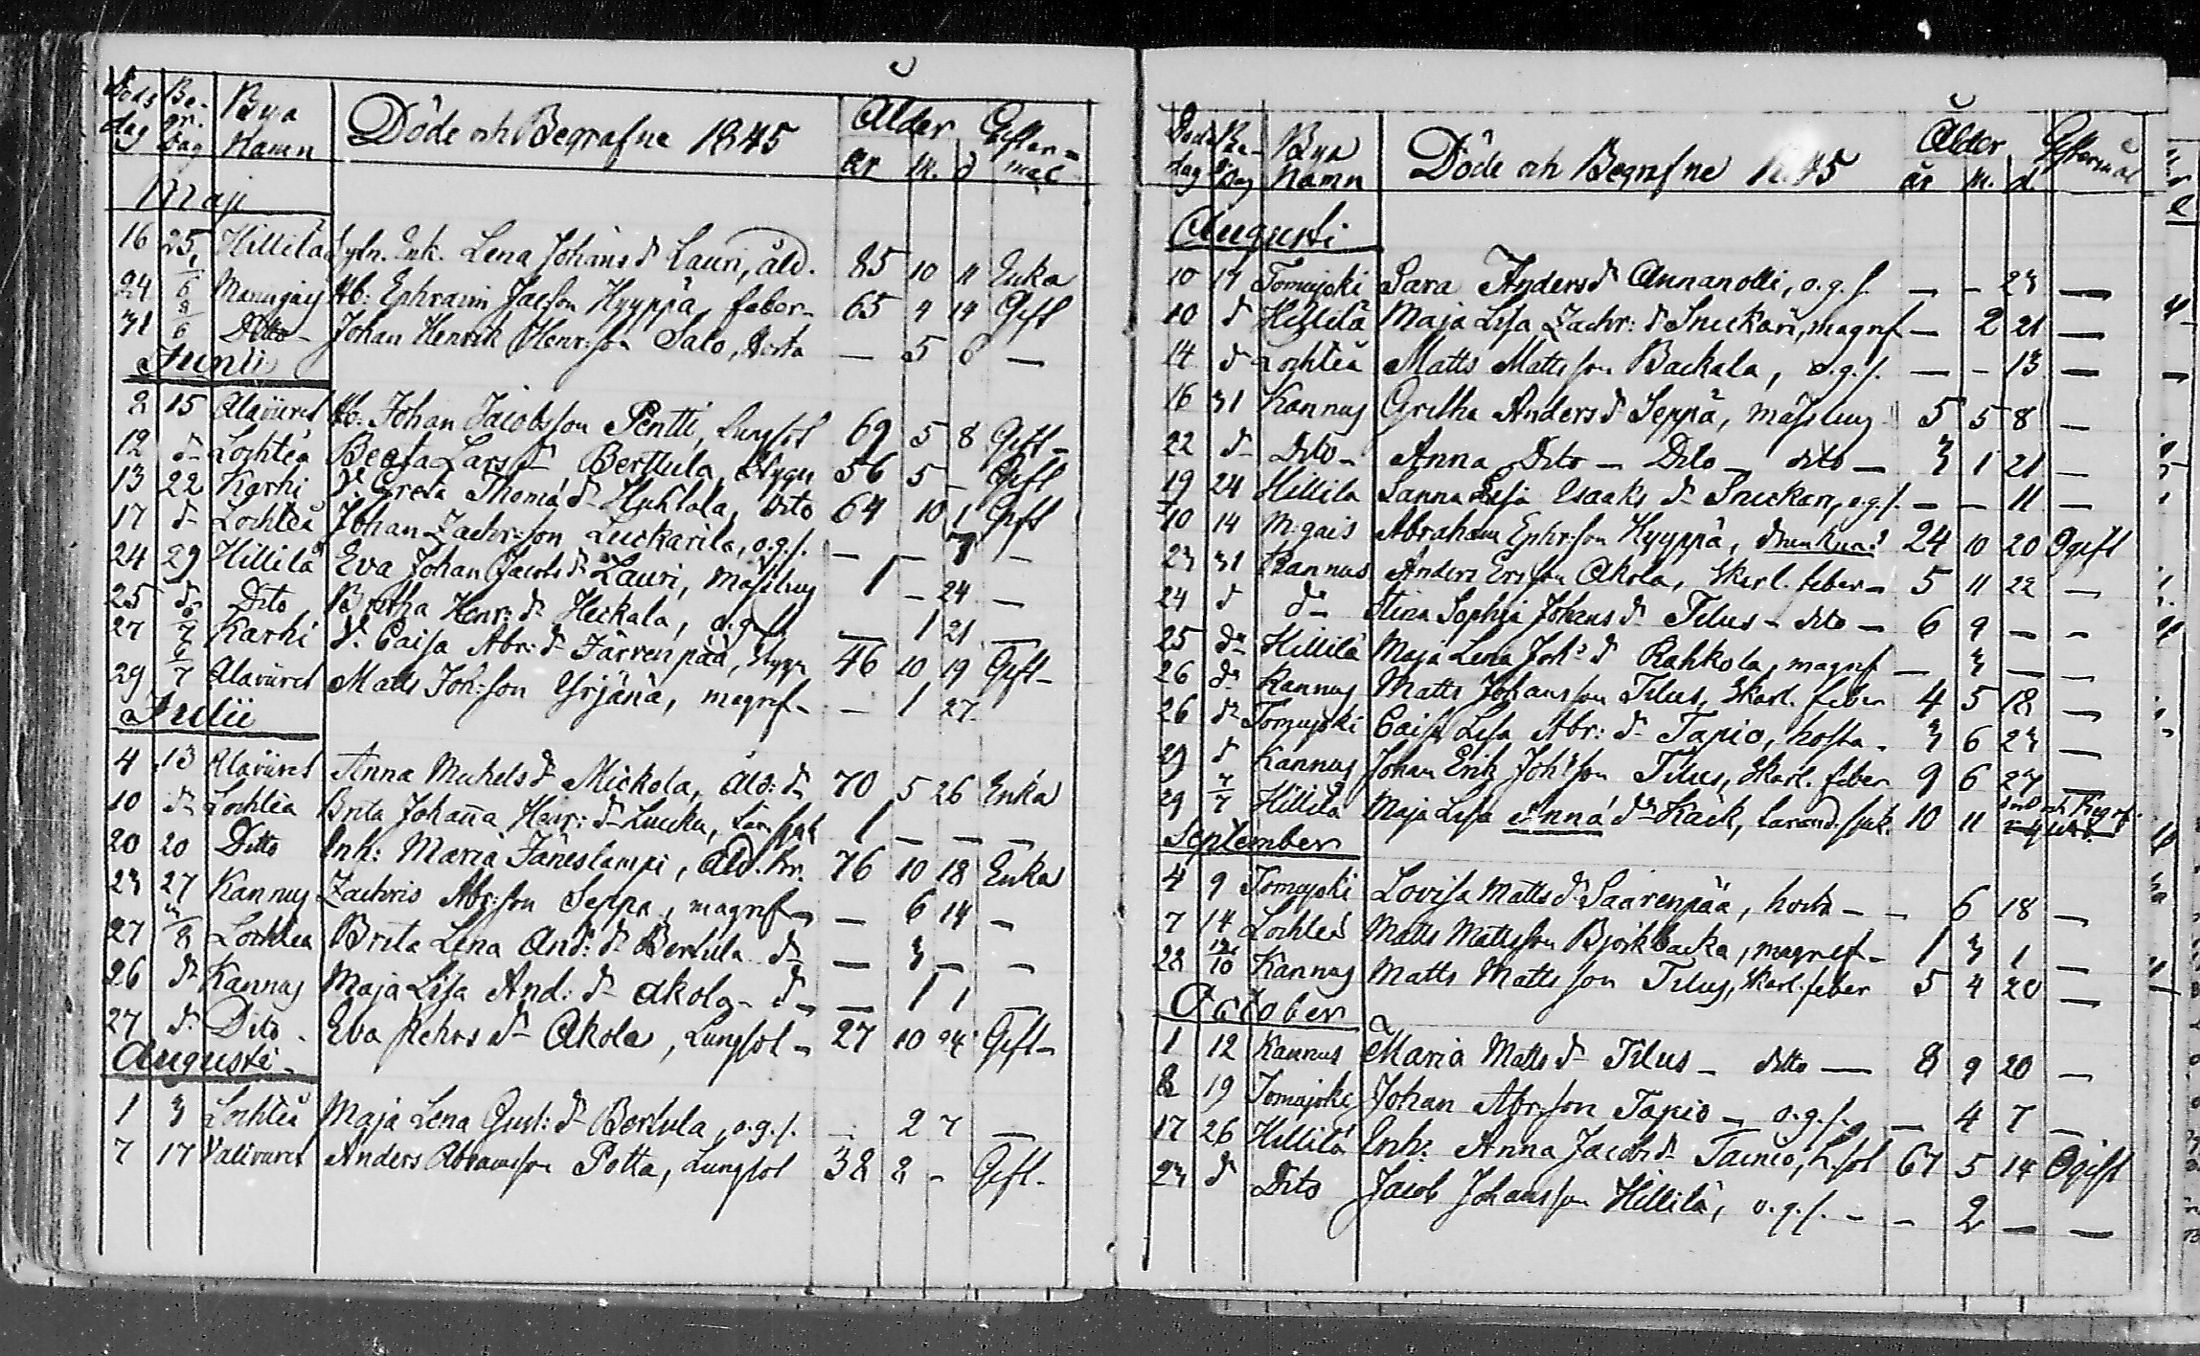 Döds dag Be- gr. dag Bya Namn Döde och Begrafne 1845 Ålder år m. d Gifter= mål
Maji
16 25 Hillilä Enk. Lena Johans d Lauri, åld. 85 10 11 Enka
24 1/6 Mb: Ephraim Jacsson Hyyppä, feber- 65 9 14 Gift
31 8/6 Ditto- Johan Henrik Henr:sson Salo, Hosta — 5 6 —
Junii
8 15 Alaviirret Hb. Johan Jacobsson Pentti, Lungsot 69 5 8 Gift-
12 d- Lochteå Beata Lars d- Berttula, Stygn 56 5 - Gift
13 22 Karhi Greta Thomæ d- Huhtala, dito 64 10 1 Gift
17 d- Lochteå Johan Zachr:sson Luckarila, o.g.s. — — 7 —
24 29 Hillilä Eva Johan Jacobs d- Lauri, Mässling 1 - 24 —
25 d- Dito Britha Henr: d- Heikala, o.g.s. — 1 21 —
27 6/7 Karhi Caisa Abr: d- Järvenpää, Stygn 46 10 19 Gift-
29 6/7 Alaviirret Matts Joh:sson Yrjänä, magref- — 1 27
Julii
4 13 Alaviirret Anna Michels d- Mickola, Åld: d- 70 5 26 Enka
10 d- Lochteå Brita Johanna Henr: d- Lucku, 1 — — —
20 20 Ditto Inh: Maria Jäneslampi, Åld. kr. 76 10 18 Enka
23 27 Kannus Zachris Abr:sson Seppä, magref- — 6 14 —
27 3/8 Lochteå Brita Lena And: d- Bertula d- — 3 — —
26 d- Kannus Maja Lisa And: d- Akola- d- — 1 1 —
27 d- Dito- Eva Pehrs d- Akola, Lungsot- 27 10 24 Gift-
Augusti-
1 3 Lochteå Maja Lena Gust: d- Bertula, o.g.s. — 2 7 —
7 17 Anders Abramsson Potta, Lungsot 38 8 - Gift-
Döds dag Be- gr. dag Bya Namn Döde och Begrafne 1845 Ålder år m. d. Giftermål
Augusti
10 17 Tomujoki Sara Anders d Annanolli, o.g.s. — - 23 —
10 d Hillilä Maja Lisa Zachr: d Snickari, magref — 2 21 —
14 d- Lochteå Matts Mattsson Backala, o.g.s. — - 13 —
16 31 Kannus Gretha Anders d Seppä, mässling 5 5 8 —
22 d- Dito- Anna Dito- Dito- dito- 3 1 21 —
19 24 Hillilä Sanna Lisa Isaaks d- Snickari, o.g.s. — — 11 —
10 14 M.gais Abraham Ephr:sson Hyyppä, drunknad 24 10 20 Ogift
23 31 Kannus Anders Ersson Akola, Skarl. feber- 5 11 22 —
24 d d- Stina Sophia Johans d- Tilus- dito- 6 9 — —
25 d- Hillilä Maja Lena Joh:s d Rahkola, magref — 3 — —
26 d- Kannus Matts Johansson Tilus, Skarl. feber 4 5 18 —
26 d- Tomujoki Caisa Lisa Abr: d- Tapio, hosta- 3 6 23 —
29 d Kannus Johan Erik Joh:sson Tilus, Skarl. feber 9 6 27 —
29 7/7 Hillilä Maja Lisa Anna d- Käck, 10 11
September
4 9 Tomujoki Lovisa Matts d- Saarenpää, hosta - - 6 18 —
7 14 Lochteå Matts Mattsson Björkbacka, magref- 1 3 1 —
28 12/10 Kannus Matts Mattsson Tilus, Skarl. feber 5 4 20 —
October
1 12 Kannus Maria Matts d- Tilus- ditto — 8 9 20 —
8 19 Tomujoki Johan Abr:sson Tapio- o.g.s. — 4 7 —
17 26 Hillilä Enk: Anna Jacobs d- Tainio, L.sot 67 5 14 Ogift
23 d Dito Jacob Johansson Hillilä, o.g.s. - - 2 — —